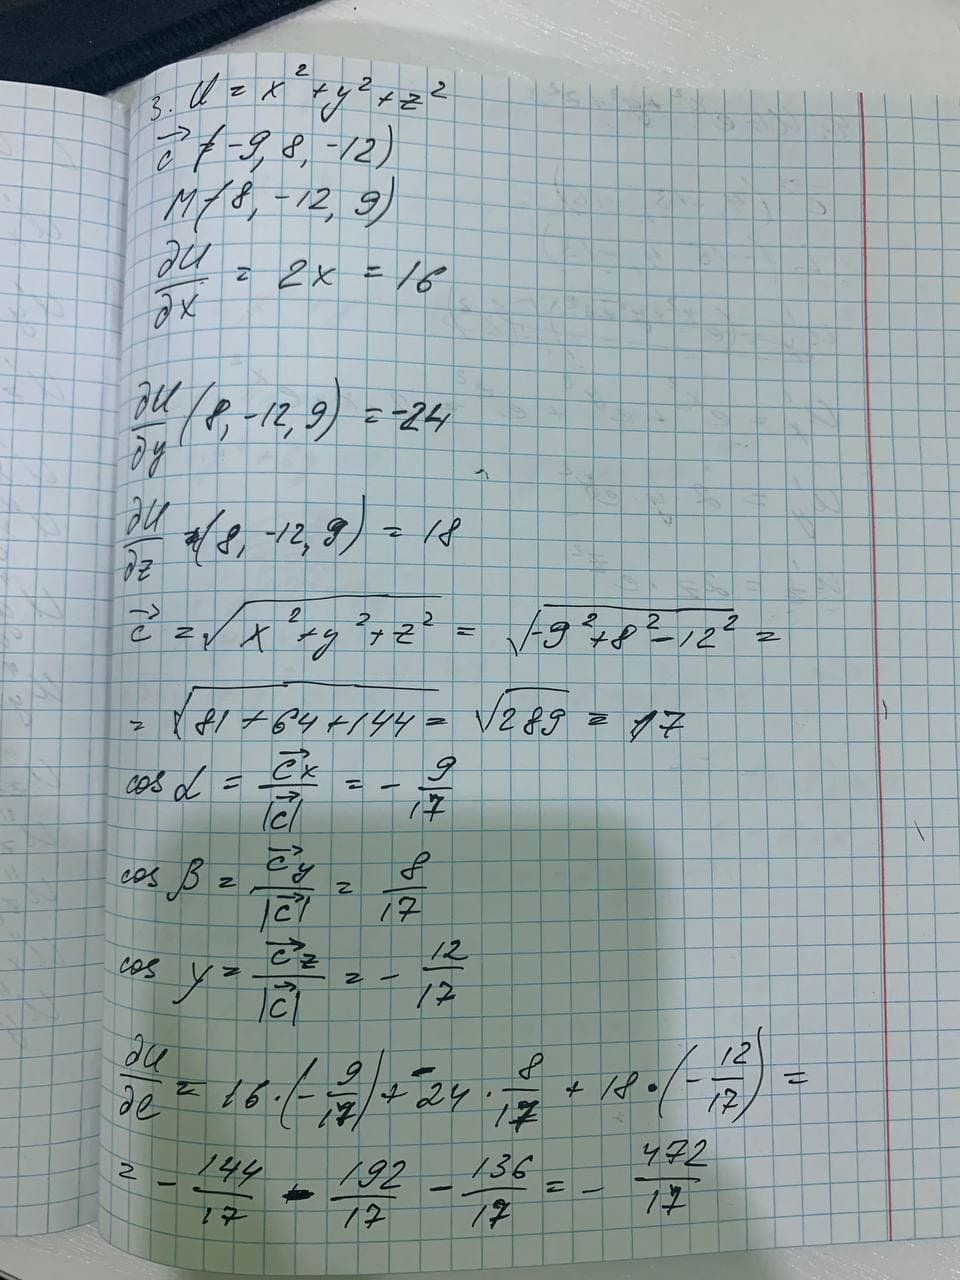 3. U = x² + y² + z²
c⃗ (= -9, 8, -12)
M(8, -12, 9)
∂U/∂x = 2x = 16
∂U/∂y (8, -12, 9) = -24
∂U/∂z (8, -12, 9) = 18
c⃗ = √(x² + y² + z²) = √(-9² + 8² - 12²) =
= √(81 + 64 + 144) = √289 = 17
cos α = c⃗x/|c⃗| = - 9/17
cos β = c⃗y/|c⃗| = 8/17
cos γ = c⃗z/|c⃗| = - 12/17
∂U/∂c = 16 · (- 9/17) + -24 · 8/17 + 18 · (- 12/17) =
= - 144/17 - 192/17 - 136/17 = - 472/17